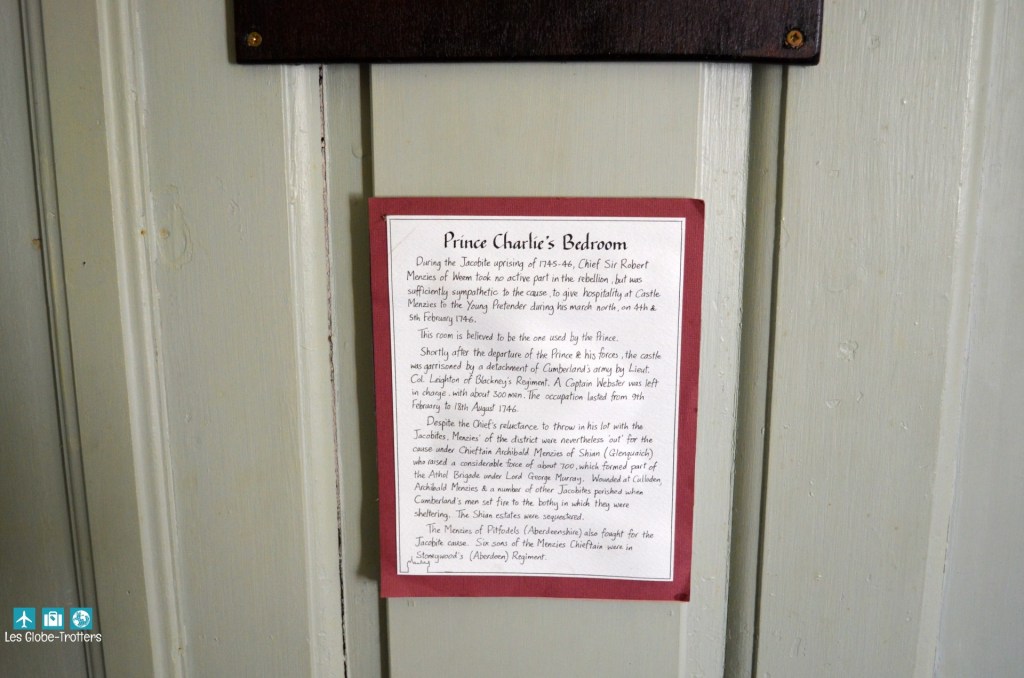 Prince Charlie's Bedroom
During the Jacobite uprising of 1745-46, Chief Sir Robert
Menzies of Weem took no active part in the rebellion, but was
sufficiently sympathetic to the cause, to give hospitality at Castle
Menzies to the Young Pretender during his march north, on 4th &
5th February 1746.
This room is believed to be the one used by the Prince.
Shortly after the departure of the Prince & his forces, the castle
was garrisoned by a detachment of Cumberland's army by Lieut.
Col. Leighton of Blackney's Regiment. A Captain Webster was left
in charge, with about 300 men. The occupation lasted from 9th
February to 18th August 1746.
Despite the Chief's reluctance to throw in his lot with the
Jacobites, Menzies' of the district were nevertheless 'out' for the
cause under Chieftain Archibald Menzies of Shian (Glenquaich)
who raised a considerable force of about 700, which formed part of
the Athol Brigade under Lord George Murray. Wounded at Culloden,
Archibald Menzies & a number of other Jacobites perished when
Cumberland's men set fire to the bothy in which they were
sheltering. The Shian estates were sequestered.
The Menzies of Pitfodels (Aberdeenshire) also fought for the
Jacobite cause. Six sons of the Menzies Chieftain were in
Stoneywood's (Aberdeen) Regiment.
Les Globe-Trotters